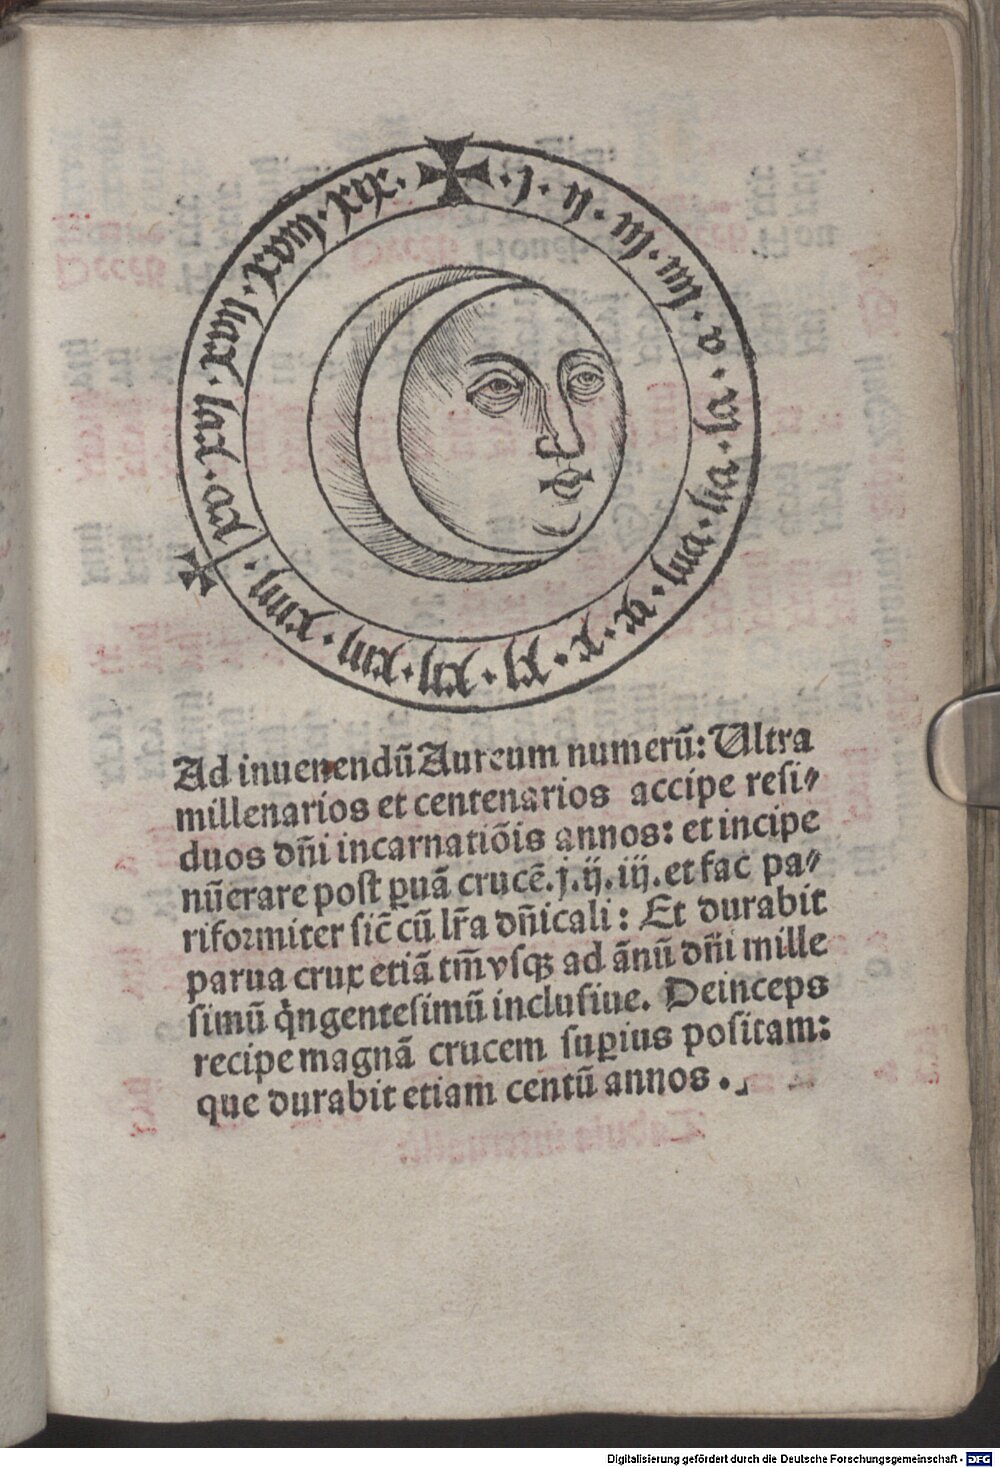 · j · ij · iij · iiij · v · vi · vij · viij · ix · x · xi · xij · xiij · xiiij · xv · xvi · xvij · xviij · xix ·
Ad inuenendū Aureum numerū: Ultra
millenarios et centenarios accipe resi⸗
duos dñi incarnatiōis annos: et incipe
nūerare post ꝑuā crucē. j. ij. iij. et fac pa⸗
riformiter sic̄ cū lr̄a dñicali: Et durabit
parua crux etiā tm̄ vsqꝫ ad ānū dñi mille
simū qͥngentesimū inclusiue. Deinceps
recipe magnā crucem suꝑius positam:
que durabit etiam centū annos.
Digitalisierung gefördert durch die Deutsche Forschungsgemeinschaft - DFG